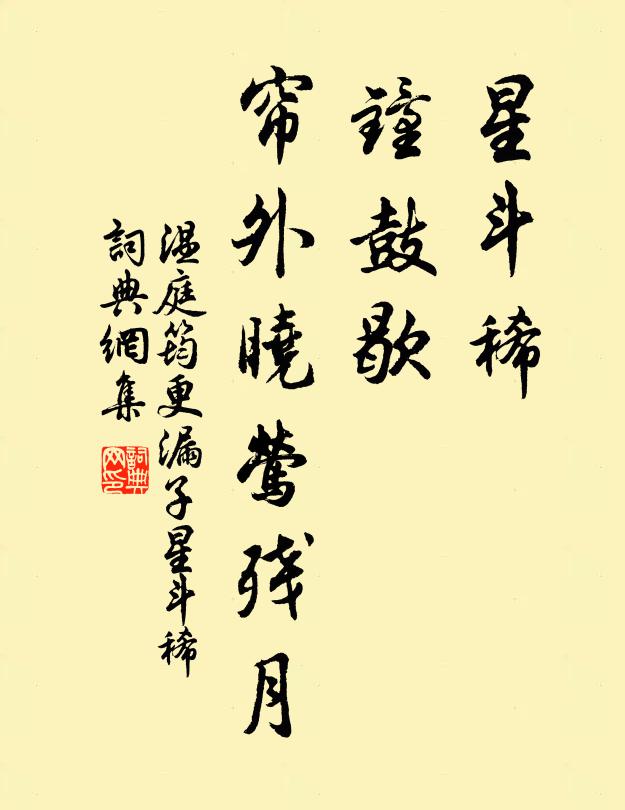 星斗稀
鐘鼓歇
帘外曉鶯残月
温庭筠更漏子星斗稀
詞典網集
詞典网印